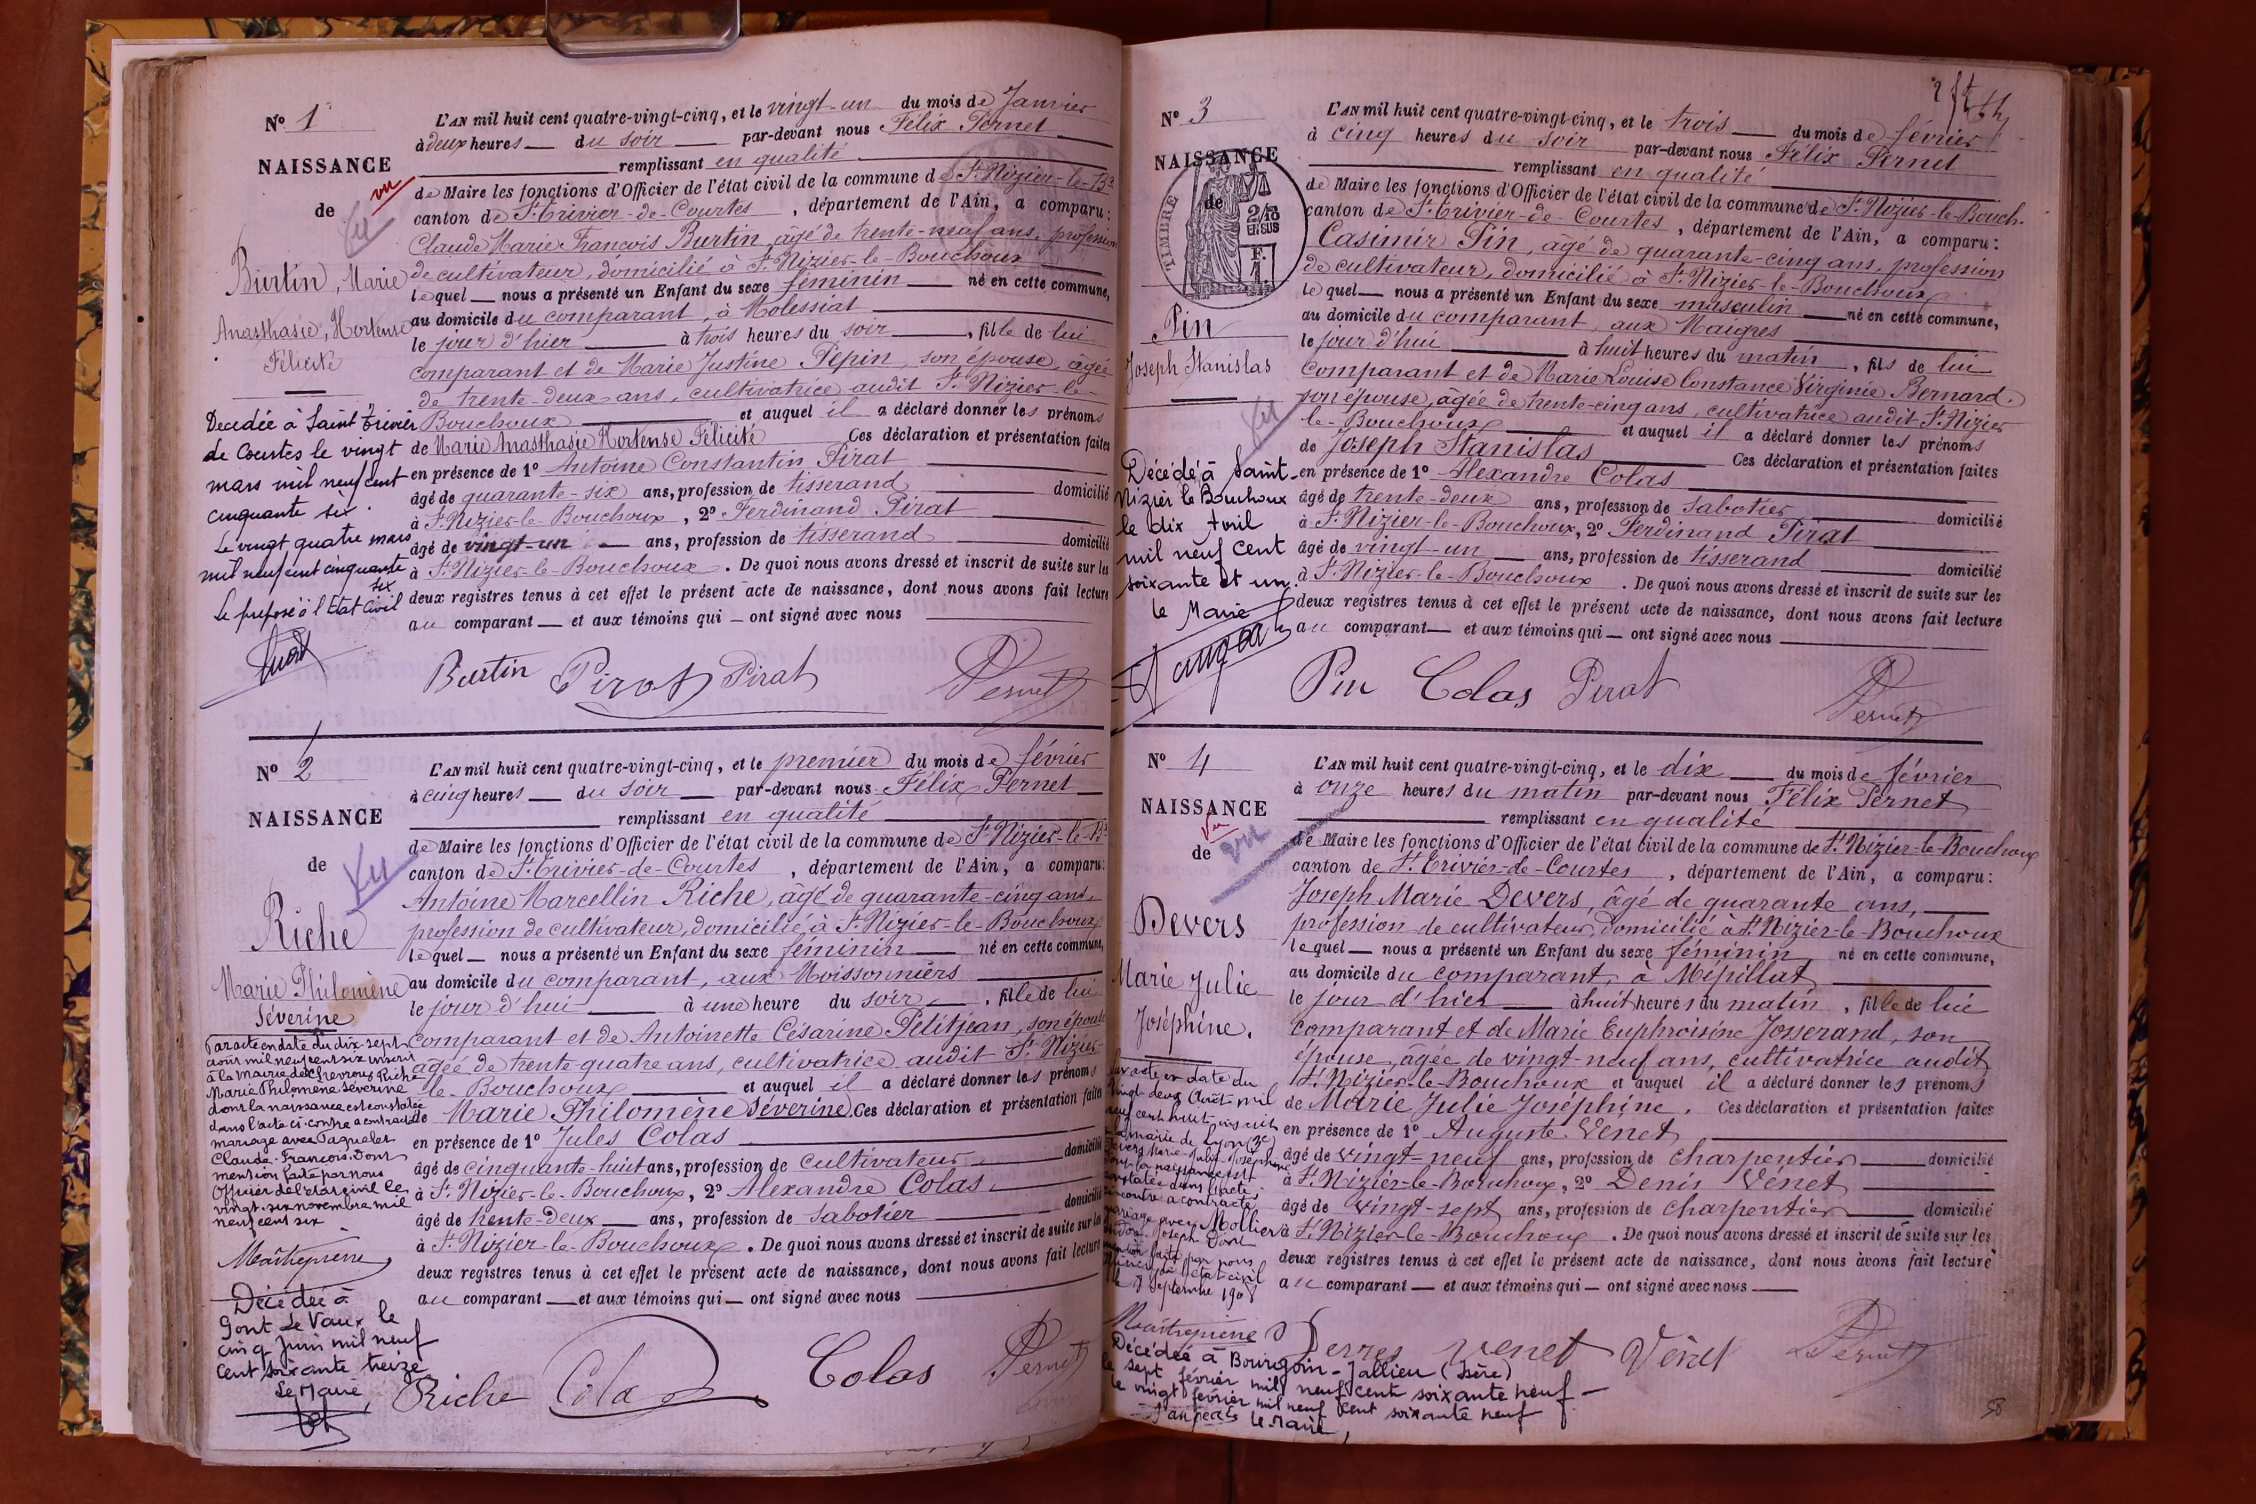 N° 1
NAISSANCE
de
vu
Vu
Burtin, Marie
Anasthasie, Hortense
Félicité
Décédée à Saint Trivier
de Courtes le vingt
mars mil neuf cent
cinquante six.
Le vingt quatre mars
mil neuf cent cinquante
six
Le préposé à l'Etat Civil
L'AN mil huit cent quatre-vingt-cinq, et le vingt-un du mois de Janvier
à deux heures du soir par-devant nous Félix Pernet
remplissant en qualité
de Maire les fonctions d'Officier de l'état civil de la commune de St Nizier-le-Bx
canton de St Trivier-de-Courtes, département de l'Ain, a comparu:
Claude Marie François Burtin, âgé de trente-neuf ans, profession
de cultivateur, domicilié à St Nizier-le-Bouchoux
lequel nous a présenté un Enfant du sexe féminin né en cette commune,
au domicile du comparant, à Molessiat
le jour d'hier à trois heures du soir, fille de lui
comparant et de Marie Justine Pépin, son épouse, âgée
de trente-deux ans, cultivatrice audit St Nizier-le-
Bouchoux et auquel il a déclaré donner les prénoms
de Marie Anasthasie Hortense Félicité Ces déclaration et présentation faites
en présence de 1° Antoine Constantin Pirat
âgé de quarante-six ans, profession de tisserand domicilié
à St Nizier-le-Bouchoux, 2° Ferdinand Pirat
âgé de vingt-un ans, profession de tisserand domicilié
à St Nizier-le-Bouchoux. De quoi nous avons dressé et inscrit de suite sur les
deux registres tenus à cet effet le présent acte de naissance, dont nous avons fait lecture
au comparant et aux témoins qui ont signé avec nous
Burtin Pirat Pirat Pernet
N° 2
NAISSANCE
de
Vu
Riche
Marie Philomène
Séverine
Par acte en date du dix sept
août mil neuf cent six inscrit
à la Mairie de Chevroux Riche
Marie Philomène Séverine
dont la naissance est constatée
dans l'acte ci-contre a contracté
mariage avec Paquelet
Claude-François. Dont
mention faite par nous
Officier de l'état civil le
vingt-six novembre mil
neuf cent six
Maîtrepierre
Décédée à
Pont de Vaux le
cinq juin mil neuf
cent soixante treize
Le Maire,
L'AN mil huit cent quatre-vingt-cinq, et le premier du mois de février
à cinq heures du soir par-devant nous Félix Pernet
remplissant en qualité
de Maire les fonctions d'Officier de l'état civil de la commune de St Nizier-le-Bx
canton de St Trivier-de-Courtes, département de l'Ain, a comparu:
Antoine Marcellin Riche, âgé de quarante-cinq ans,
profession de cultivateur, domicilié à St Nizier-le-Bouchoux
lequel nous a présenté un Enfant du sexe féminin né en cette commune,
au domicile du comparant, aux Moissonniers
le jour d'hui à une heure du soir, fille de lui
comparant et de Antoinette Césarine Petitjean, son épouse
âgée de trente-quatre ans, cultivatrice audit St Nizier-
le-Bouchoux et auquel il a déclaré donner les prénoms
de Marie Philomène Séverine. Ces déclaration et présentation faites
en présence de 1° Jules Colas
âgé de cinquante-huit ans, profession de cultivateur domicilié
à St Nizier-le-Bouchoux, 2° Alexandre Colas
âgé de trente-deux ans, profession de sabotier domicilié
à St Nizier-le-Bouchoux. De quoi nous avons dressé et inscrit de suite sur les
deux registres tenus à cet effet le présent acte de naissance, dont nous avons fait lecture
au comparant et aux témoins qui ont signé avec nous
Riche Colas Colas Pernet
N° 3
NAISSANCE
de
TIMBRE
2/10
EN SUS
F.
1.
Pin
Joseph Stanislas
Vu
Décédé à Saint-
Nizier le Bouchoux
le dix Avril
mil neuf cent
soixante et un.
le Maire
L'AN mil huit cent quatre-vingt-cinq, et le trois du mois de février
à cinq heures du soir par-devant nous Félix Pernet
remplissant en qualité
de Maire les fonctions d'Officier de l'état civil de la commune de St Nizier-le-Bouch.
canton de St Trivier-de-Courtes, département de l'Ain, a comparu:
Casimir Pin, âgé de quarante-cinq ans, profession
de cultivateur, domicilié à St Nizier-le-Bouchoux
lequel nous a présenté un Enfant du sexe masculin né en cette commune,
au domicile du comparant, aux Maigres
le jour d'hui à huit heures du matin, fils de lui
comparant et de Marie Louise Constance Virginie Bernard.
son épouse, âgée de trente-cinq ans, cultivatrice audit St Nizier
le-Bouchoux et auquel il a déclaré donner les prénoms
de Joseph Stanislas Ces déclaration et présentation faites
en présence de 1° Alexandre Colas
âgé de trente-deux ans, profession de sabotier domicilié
à St Nizier-le-Bouchoux, 2° Ferdinand Pirat
âgé de vingt-un ans, profession de tisserand domicilié
à St Nizier-le-Bouchoux. De quoi nous avons dressé et inscrit de suite sur les
deux registres tenus à cet effet le présent acte de naissance, dont nous avons fait lecture
au comparant et aux témoins qui ont signé avec nous
Pin Colas Pirat Pernet
N° 4
NAISSANCE
de
Vu
vu
Devers
Marie Julie
Joséphine.
Par acte en date du
vingt-deux Août mil
neuf cent huit inscrit
à la mairie de Lyon (3e)
Devers Marie Julie Joséphine
dont la naissance est
constatée dans l'acte
ci-contre a contracté
mariage avec Mollier
Joseph Dont
mention faite par nous
officier de l'état civil
le 8 Septembre 1908
Maîtrepierre
Décédée à Bourgoin-Jallieu (Isère)
le sept février mil neuf cent soixante neuf
le vingt février mil neuf cent soixante neuf
Le Maire,
L'AN mil huit cent quatre-vingt-cinq, et le dix du mois de février
à onze heures du matin par-devant nous Félix Pernet
remplissant en qualité
de Maire les fonctions d'Officier de l'état civil de la commune de St Nizier-le-Bouchoux
canton de St Trivier-de-Courtes, département de l'Ain, a comparu:
Joseph Marie Devers, âgé de quarante ans,
profession de cultivateur, domicilié à St Nizier-le-Bouchoux
lequel nous a présenté un Enfant du sexe féminin né en cette commune,
au domicile du comparant, à Mépillat
le jour d'hier à huit heures du matin, fille de lui
comparant et de Marie Euphroisine Josserand, son
épouse, âgée de vingt-neuf ans, cultivatrice audit
St Nizier-le-Bouchoux et auquel il a déclaré donner les prénoms
de Marie Julie Joséphine. Ces déclaration et présentation faites
en présence de 1° Auguste Venet
âgé de vingt-neuf ans, profession de charpentier domicilié
à St Nizier-le-Bouchoux, 2° Denis Vénet
âgé de vingt-sept ans, profession de charpentier domicilié
à St Nizier-le-Bouchoux. De quoi nous avons dressé et inscrit de suite sur les
deux registres tenus à cet effet le présent acte de naissance, dont nous avons fait lecture
au comparant et aux témoins qui ont signé avec nous
Devers Venet Vénet Pernet
58